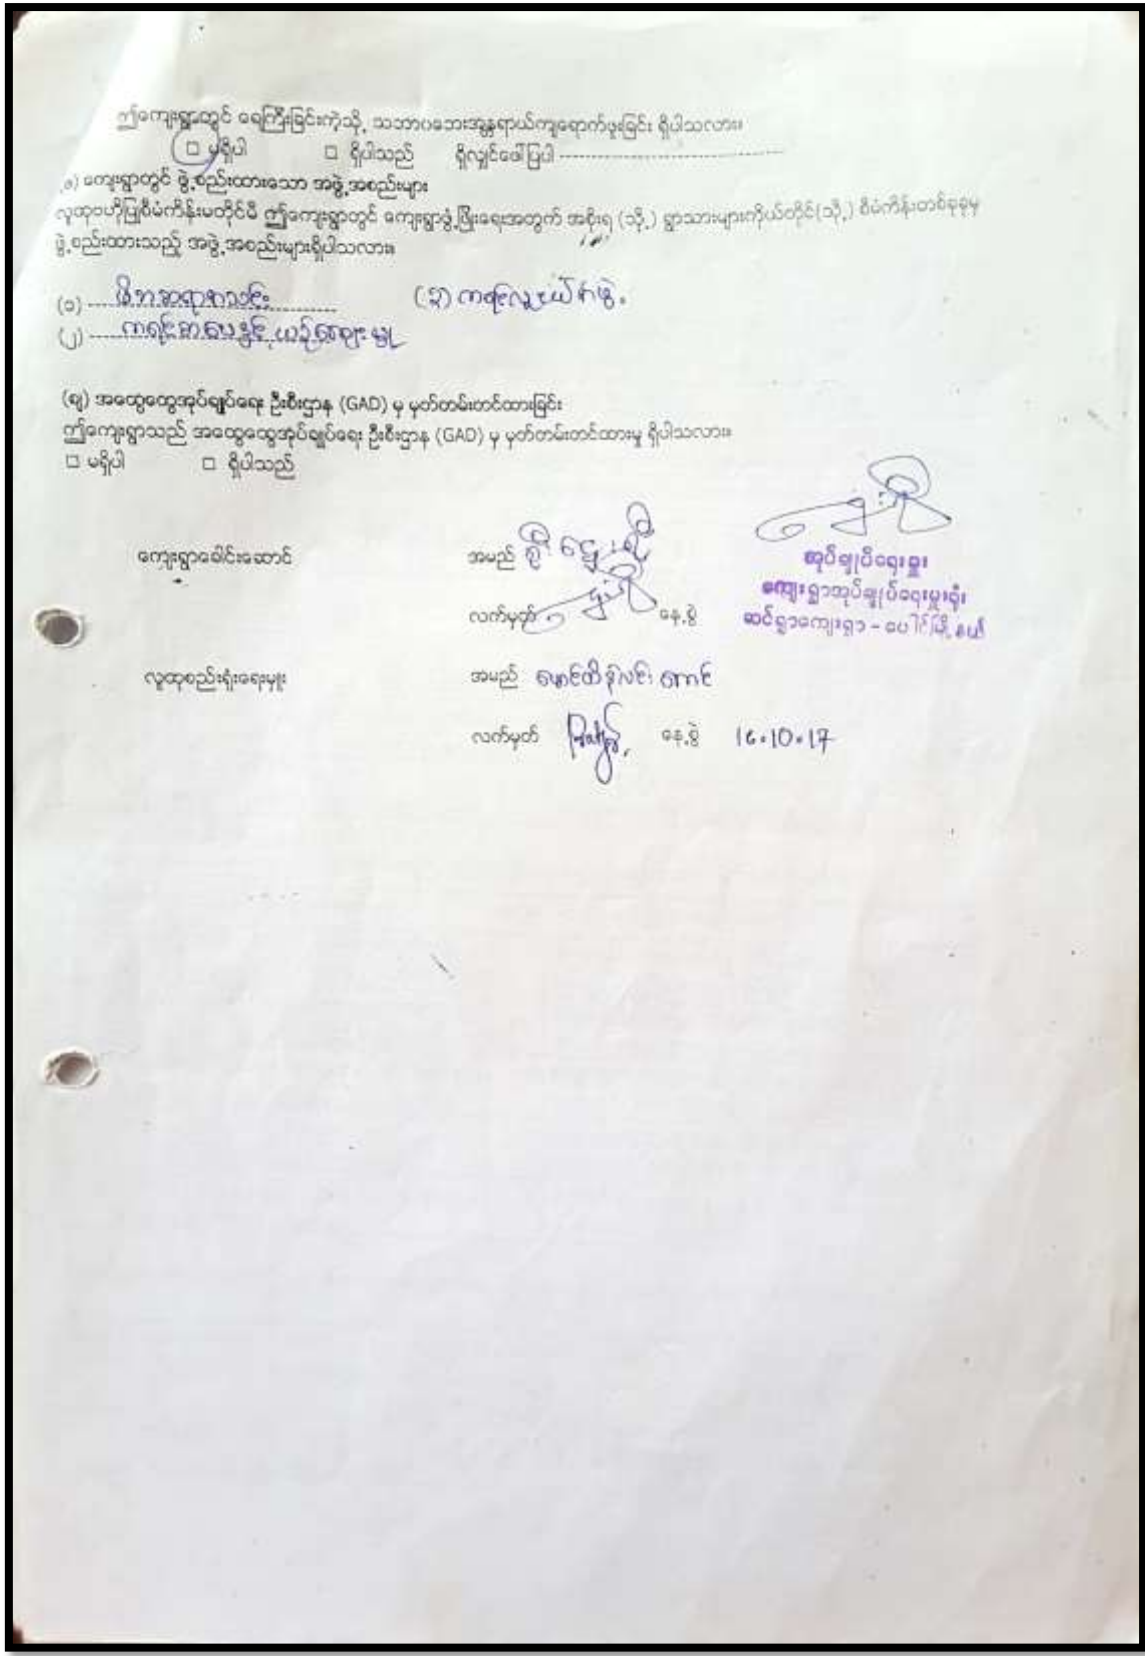 ဤကျေးရွာတွင် ရေကြီးခြင်းကဲ့သို့ သဘာဝဘေးအန္တရာယ်ကျရောက်ဖူးခြင်း ရှိပါသလား။
□ မရှိပါ □ ရှိပါသည် ရှိလျှင်ဖေါ်ပြပါ
ကျေးရွာတွင် ဖွဲ့စည်းထားသော အဖွဲ့အစည်းများ
လူထုဗဟိုပြုစီမံကိန်းမတိုင်မီ ဤကျေးရွာတွင် ကျေးရွာဖွံ့ဖြိုးရေးအတွက် အစိုးရ (သို့) ရွာသားများကိုယ်တိုင်(သို့) စီမံကိန်းတစ်ခုခုမှ
ဖွဲ့စည်းထားသည့် အဖွဲ့အစည်းများရှိပါသလား။
(၁) မိဘဆရာအသင်း (၃) ကရင်လူငယ်အဖွဲ့
(၂) ကရင်စာပေနှင့် ယဉ်ကျေးမှု
(ဈ) အထွေထွေအုပ်ချုပ်ရေး ဦးစီးဌာန (GAD) မှ မှတ်တမ်းတင်ထားခြင်း
ဤကျေးရွာသည် အထွေထွေအုပ်ချုပ်ရေး ဦးစီးဌာန (GAD) မှ မှတ်တမ်းတင်ထားမှု ရှိပါသလား။
□ မရှိပါ □ ရှိပါသည်
ကျေးရွာခေါင်းဆောင် အမည်
အုပ်ချုပ်ရေးမှူး
ကျေးရွာအုပ်ချုပ်ရေးမှူးရုံး
လက်မှတ် နေ့စွဲ
ဆင်ရွာကျေးရွာ - ပေါင်မြို့နယ်
လူထုစည်းရုံးရေးမှူး အမည် မောင်ထိန်လင်းအောင်
လက်မှတ် နေ့စွဲ 16.10.17